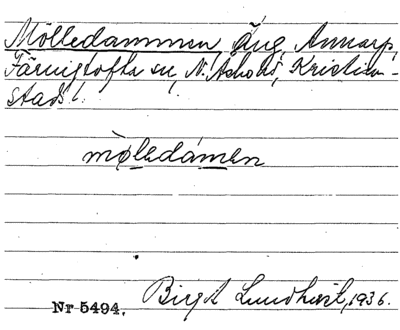 Mölledammen, Äng, Annarp,
Färingtofta sn, N. Åsbo hd, Kristian-
stads l.
mòledàmen
Birgit Lundkvist, 1936.
Nr 5494.